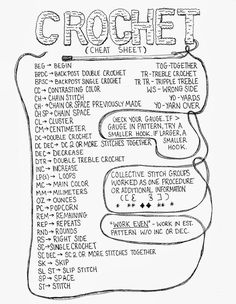 CROCHET
(CHEAT SHEET)
BEG → BEGIN
BPDC → BACKPOST DOUBLE CROCHET
BPSC → BACKPOST SINGLE CROCHET
CC → CONTRASTING COLOR
CH → CHAIN STITCH
CH- → CHAIN OR SPACE PREVIOUSLY MADE
CH SP → CHAIN SPACE
CL → CLUSTER
CM → CENTIMETER
DC → DOUBLE CROCHET
DC DEC → DC 2 OR MORE STITCHES TOGETHER
DEC → DECREASE
DTR → DOUBLE TREBLE CROCHET
INC → INCREASE
LP(S) → LOOPS
MC → MAIN COLOR
MM → MILIMETERS
OZ → OUNCES
PC → POPCORN
REM → REMAINING
REP → REPEATS
RND → ROUNDS
RS → RIGHT SIDE
SC → SINGLE CROCHET
SC DEC → SC 2 OR MORE STITCHES TOGETHER
SK → SKIP
SL ST → SLIP STITCH
SP → SPACE
ST → STITCH
TOG - TOGETHER
TR - TREBLE CROCHET
TR TR - TRIPPLE TREBLE
WS - WRONG SIDE
YD - YARDS
YO - YARN OVER
CHECK YOUR GAUGE. IF >
GAUGE IN PATTERN, TRY A
SMALLER HOOK. IF LARGER, A
SMALLER HOOK.
COLLECTIVE STITCH GROUPS
WORKED AS ONE PROCEDURE
OR ADDITIONAL INFORMATION
"WORK EVEN" - WORK IN EST.
PATTERN W/O INC OR DEC.